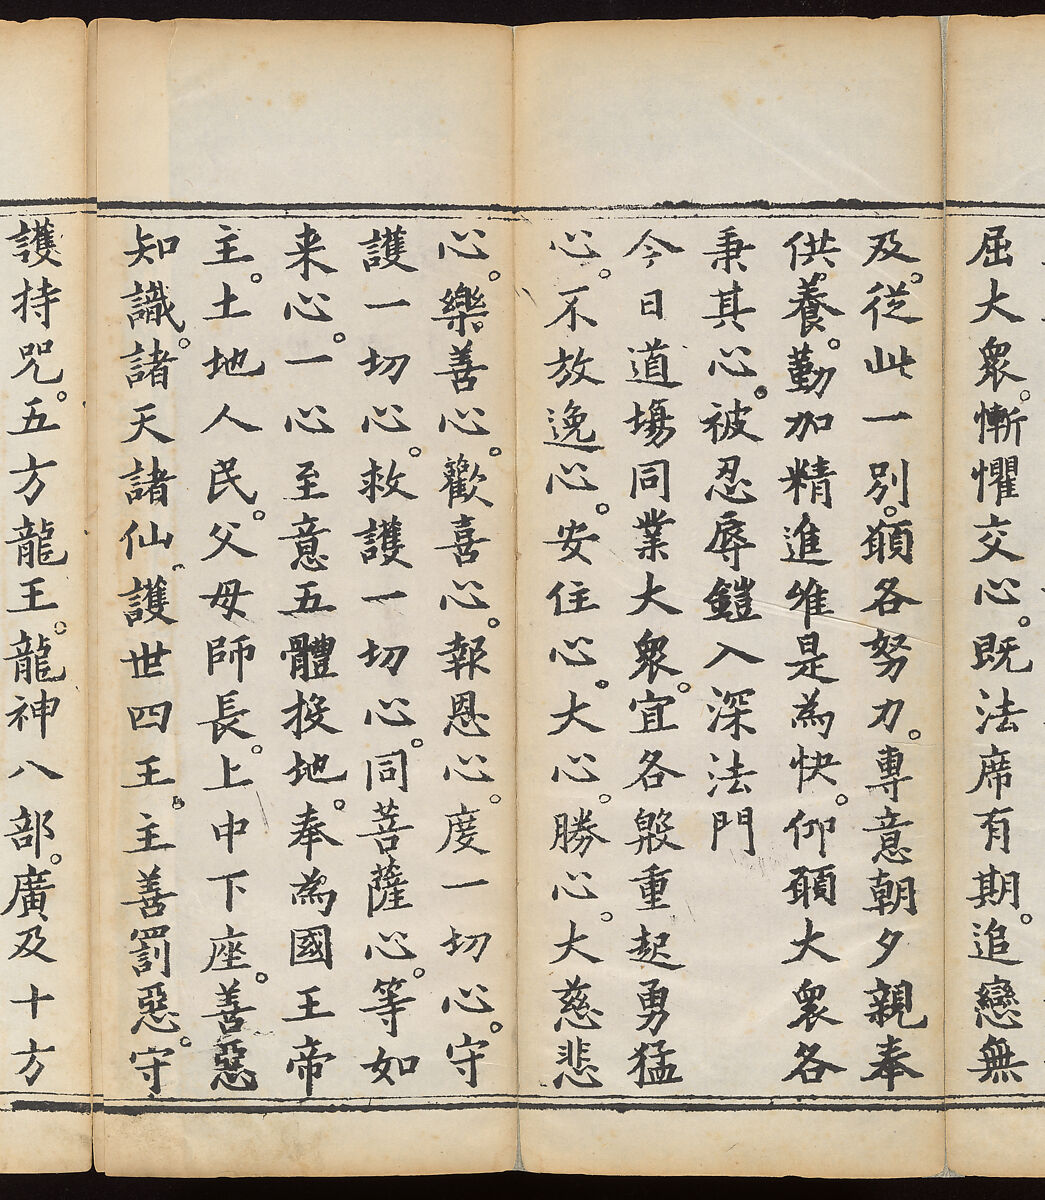 屈大衆。慚懼交心。既法席有期。追戀無
及。従此一別。頋各努力。専意朝夕親奉
供養。勤加精進唯是為快。仰頋大衆各
秉其心。被忍辱鎧入深法門
今日道塲同業大衆。宜各慇重起勇猛
心。不放逸心。安住心。大心。勝心。大慈悲
心。樂善心。歡喜心。報恩心。度一切心。守
護一切心。救護一切心。同菩薩心。等如
来心。一心至意五體投地。奉為國王帝
主。土地人民。父母師長。上中下座。善惡
知識。諸天諸仙。護世四王。主善罰惡。守
護持咒。五方龍王。龍神八部。廣及十方